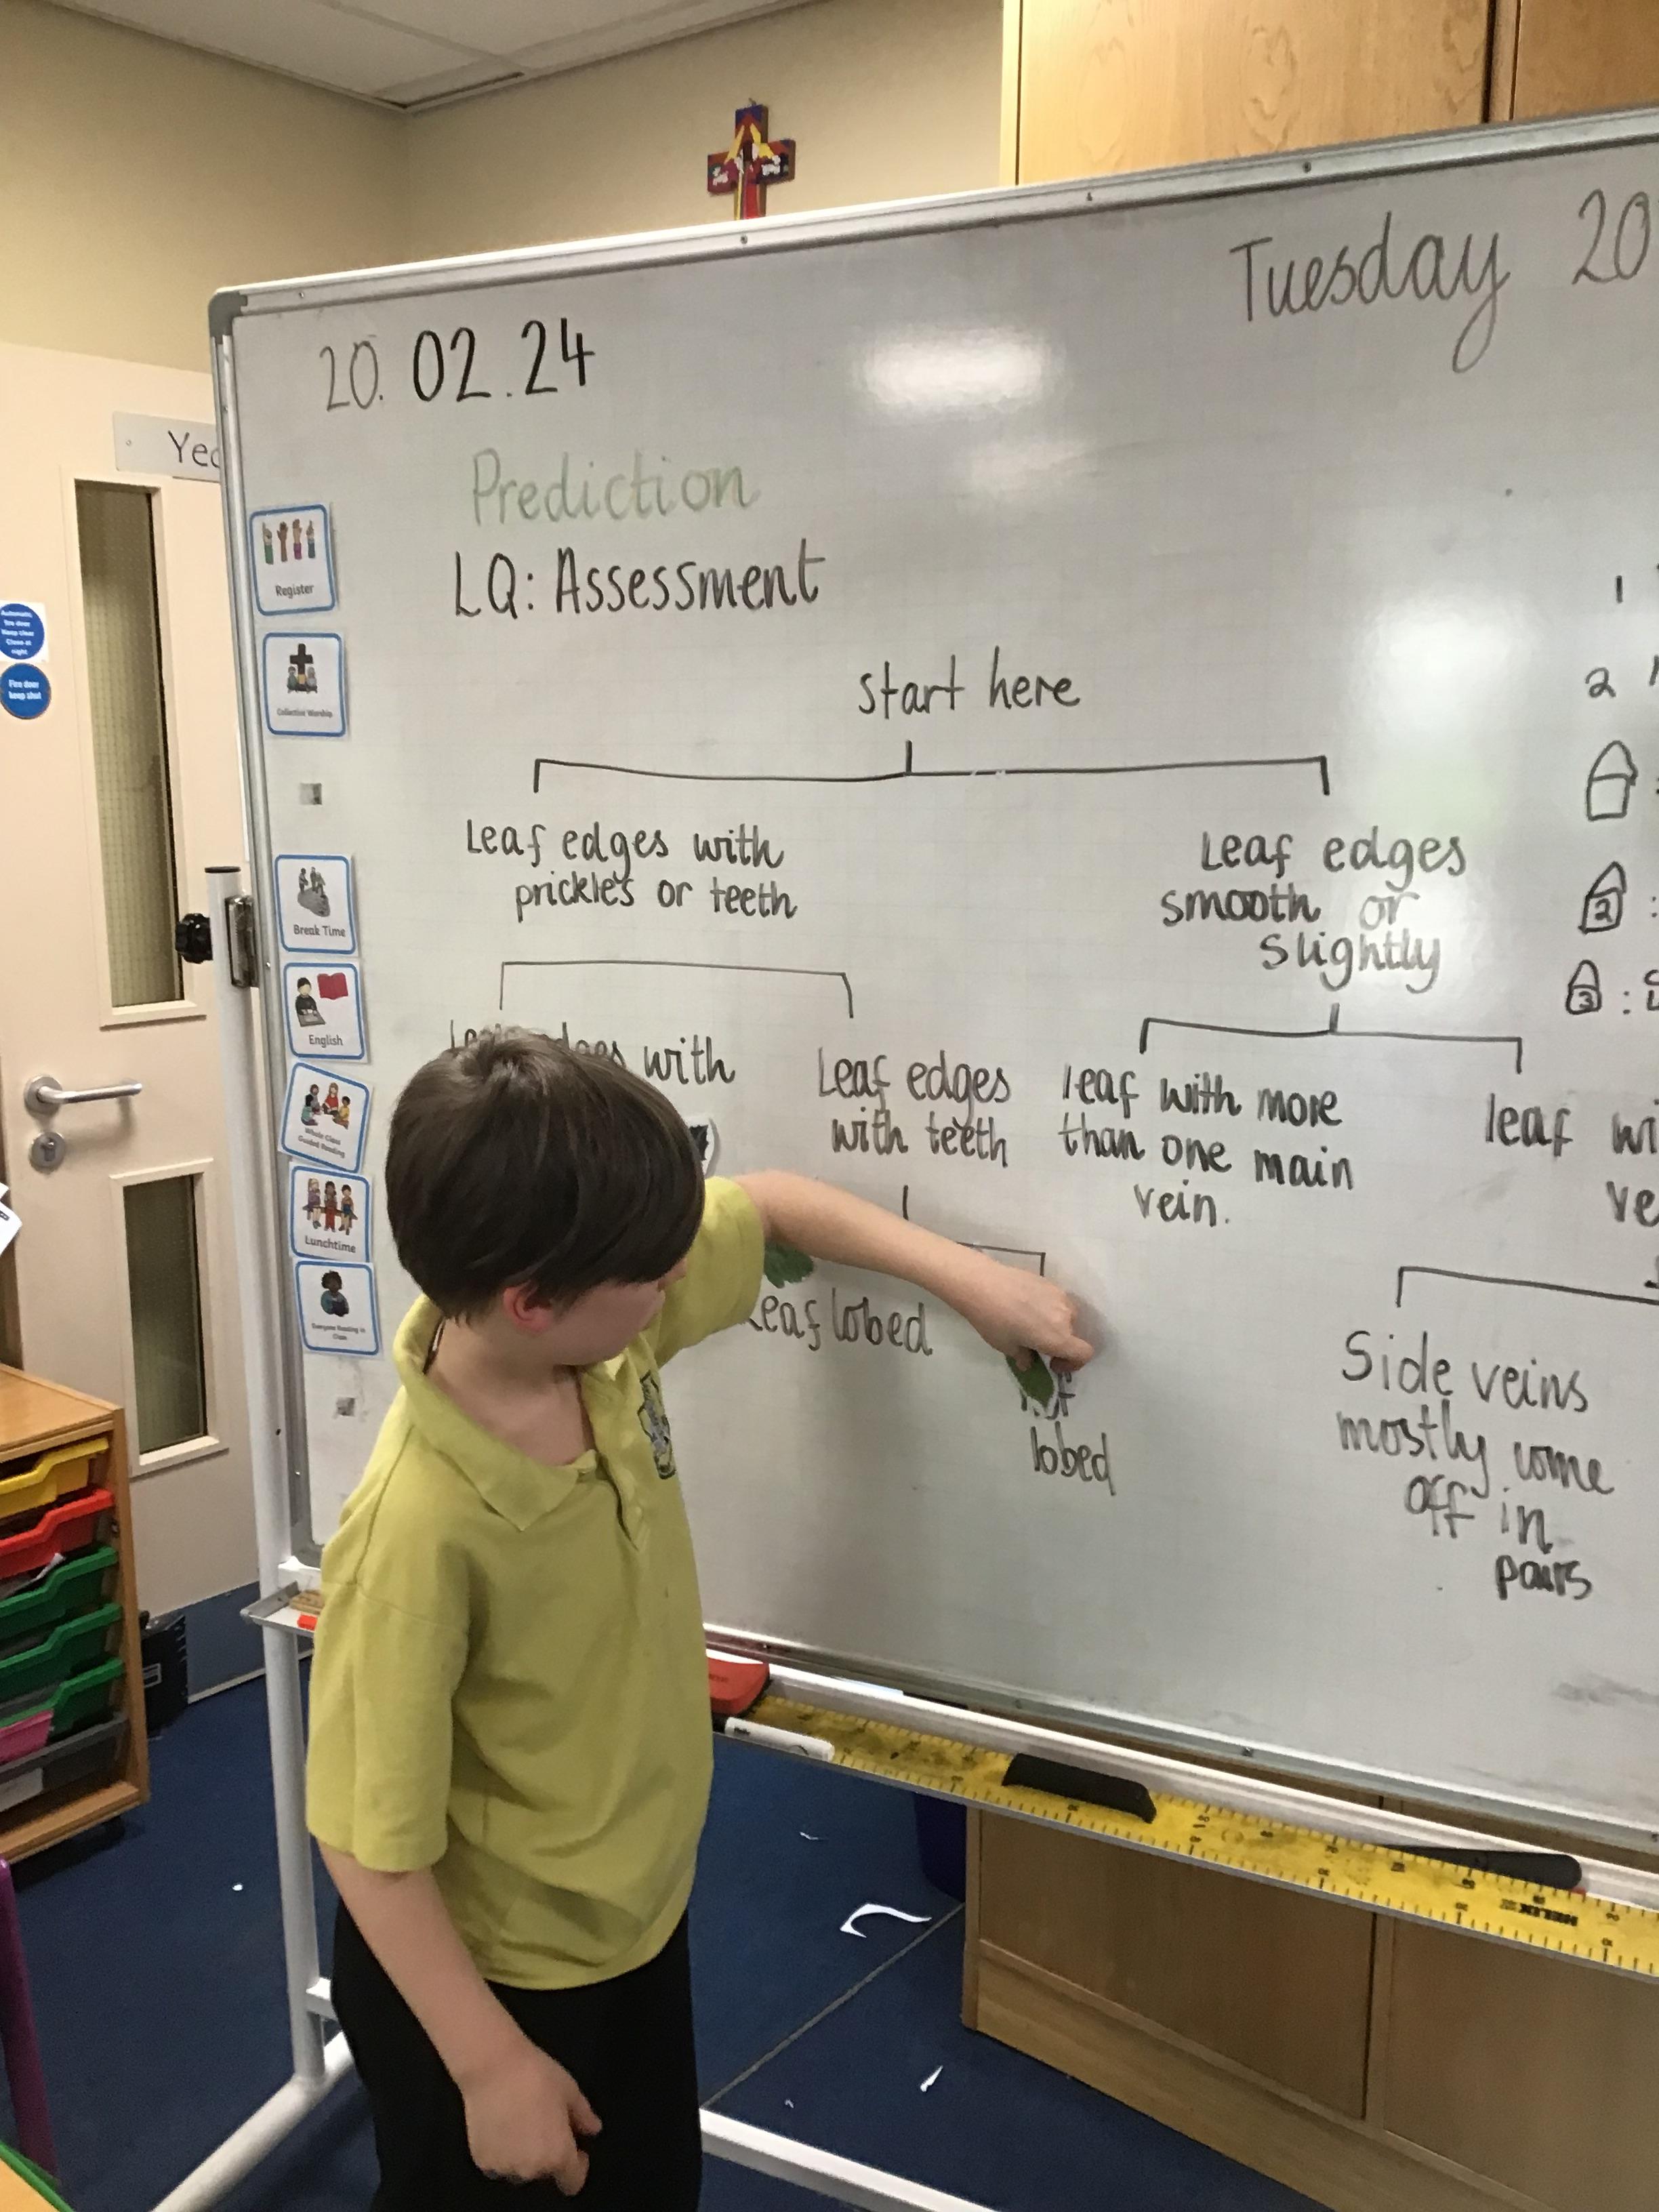 Tuesday 20
20.02.24
Prediction
LQ: Assessment
start here
Leaf edges with
prickles or teeth
Leaf edges
smooth or
slightly
with
Leaf edges
with teeth
leaf with more
than one main
vein.
leaf
Leaf lobed
lobed
Side veins
mostly come
off in
pairs
1
2
2
3 :
Register
Collective Worship
Break Time
English
Whole Class
Guided Reading
Lunchtime
Automatic
fire door
Keep clear
Close at
night
Fire door
keep shut
HELIX